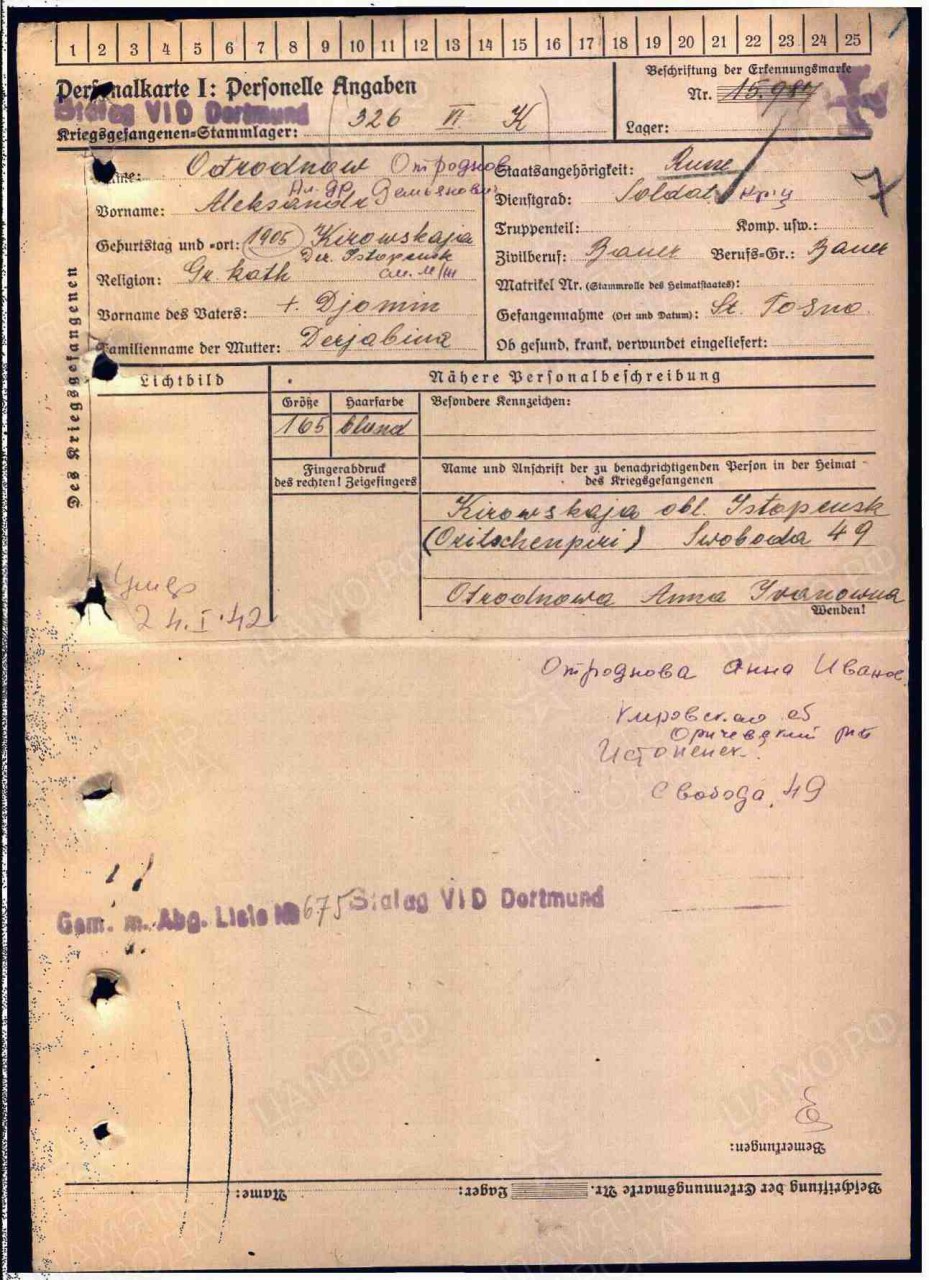 1 2 3 4 5 6 7 8 9 10 11 12 13 14 15 16 17 18 19 20 21 22 23 24 25
Personalkarte I: Personelle Angaben
Stalag VI D Dortmund
Kriegsgefangenen-Stammlager: 326 VI K
Beschriftung der Erkennungsmarke
Nr. 15.987
Lager:
Des Kriegsgefangenen
Name: Otrodnow Отроднов
Ал-др Демьянович
Vorname: Aleksandr
Geburtstag und -ort: (1905) Kirowskaja
Der. Istopensk
Religion: Gr. kath
Vorname des Vaters: + Djomin
Familienname der Mutter: Derjabina
Staatsangehörigkeit: Russe
Dienstgrad: Soldat
Truppenteil: Komp. usw.:
Zivilberuf: Bauer Berufs-Gr.: Bauer
Matrikel Nr. (Stammrolle des Heimatstaates):
Gefangennahme (Ort und Datum): St. Tosno.
Ob gesund, krank, verwundet eingeliefert:
Lichtbild
Nähere Personalbeschreibung
Größe Haarfarbe Besondere Kennzeichen:
165 blond
Fingerabdruck
des rechten! Zeigefingers
Name und Anschrift der zu benachrichtigenden Person in der Heimat
des Kriegsgefangenen
Kirowskaja obl. Istopensk
(Oritschenpiri) Swoboda 49
Otrodnowa Anna Iwanowna
Wenden!
Умер
24.I.42
Отроднова Анна Иванов.
Кировская об
Оричевский
Истопенск.
Свобода, 49
Gem. m. Abg. Liste № 675 Stalag VI D Dortmund
Bemerkungen:
Beschriftung der Erkennungsmarke Nr. Lager: Name: